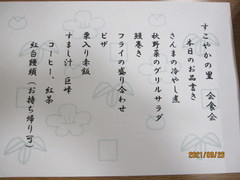 すこやかの里　会食会
本日のお品書き
さんまの冷やし煮
秋野菜のグリルサラダ
鰻巻き
フライの盛り合わせ
ピザ
栗入り赤飯
すまし汁　巨峰
コーヒー、紅茶
紅白饅頭（お持ち帰り可）
2021/09/20